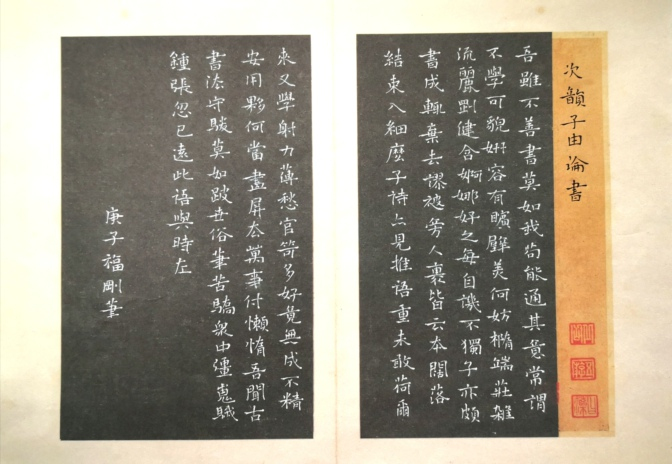 次韻子由論書
吾雖不善書莫如我苟能通其意常謂
不學可貌妍容有矉璧美何妨橢端莊雜
流麗剛健含婀娜好之每自譏不獨子亦頗
書成輒棄去謬被旁人裹皆云本闊落
結束入細麼子詩亦見推語重未敢荷爾
來又學射力薄愁官笴多好竟無成不精
安用夥何當盡屏去萬事付懶惰吾聞古
書法守駿莫如跛世俗筆苦驕眾中彊嵬騀
鍾張忽已遠此語與時左
庚子福剛筆